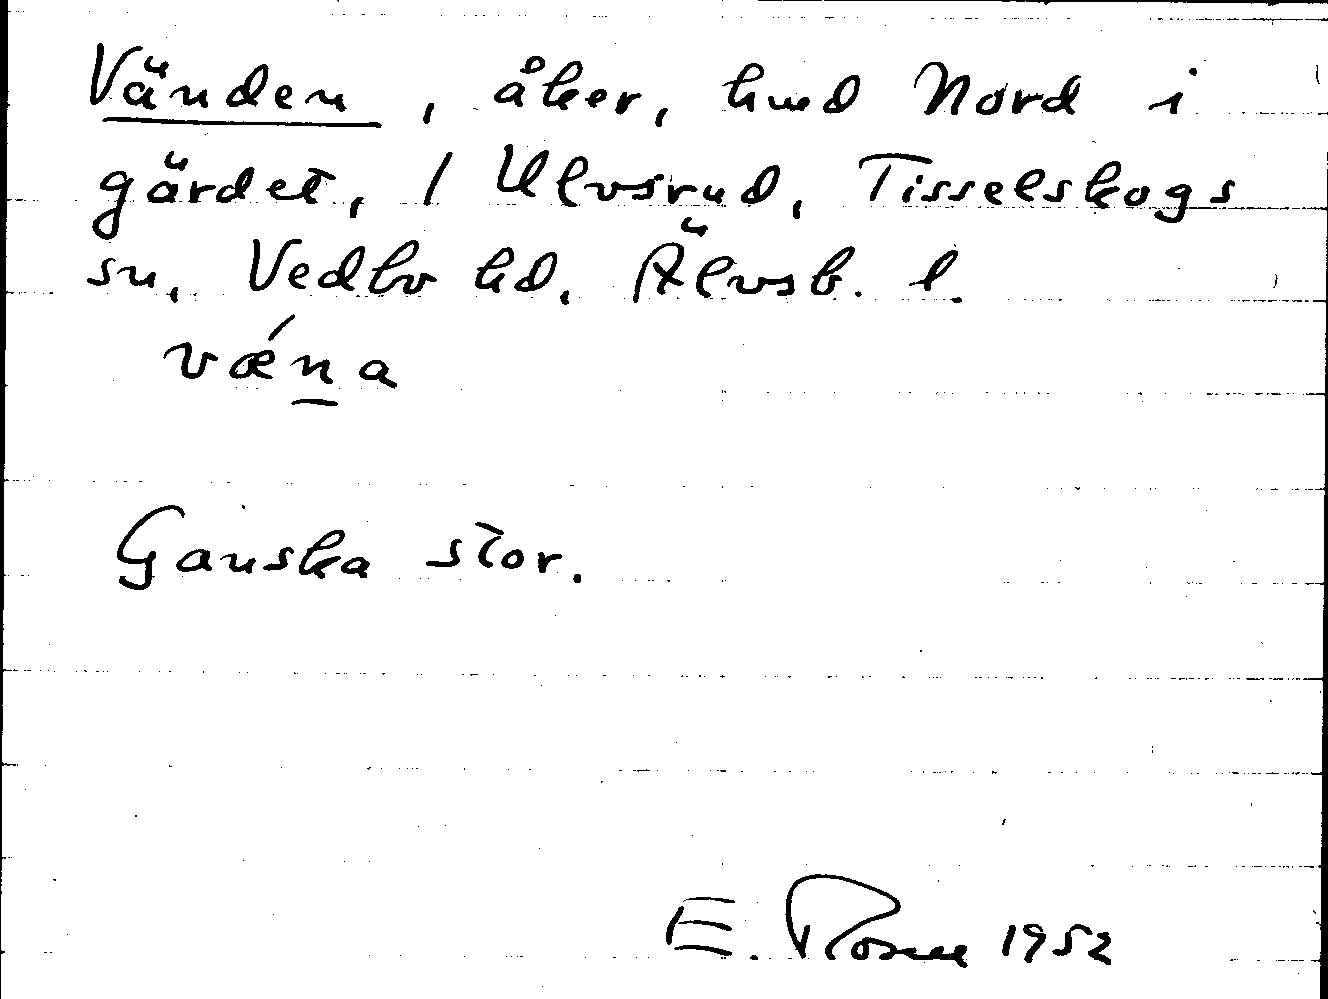 Vänden, åker, hmd Nord i
gärdet, / Ulvsrud, Tisselskogs
sn, Vedbo hd. Älvsb. l.
væ´na
Ganska stor.
E. Rosell 1952